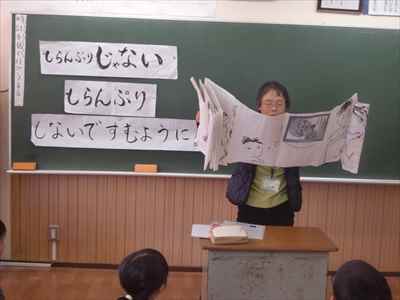 しらんぷりじゃない
しらんぷり
しないですむように